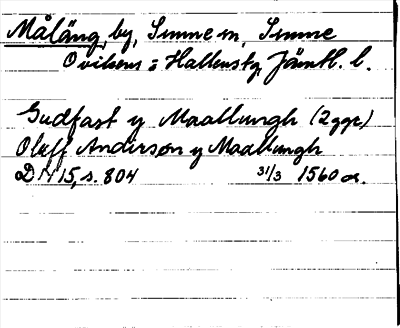 Måläng, by, Sunne sn, Sunne
Ovikens o Hallens tg, Jämtl. l.
Gudfast y Maallungh (2 ggr)
Oluff Anderson y Maallungh
DN 15, s. 804 31/3 1560 or.